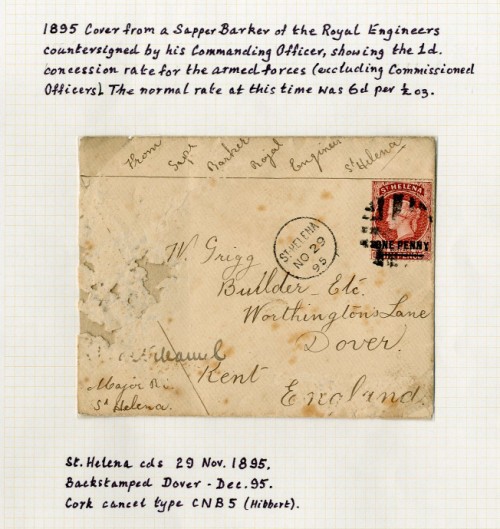 1895 Cover from a Sapper Barker of the Royal Engineers
countersigned by his Commanding Officer, showing the 1d.
concession rate for the armed forces (excluding Commissioned
Officers). The normal rate at this time was 6d per ½ oz.
From Sapr Barker Royal Engineers St Helena
ST. HELENA
ONE PENNY
ST HELENA
NO 29
95
W. Grigg
Builder Etc.
Worthington's Lane
Dover.
Kent
England.
Major R.
St Helena.
St. Helena cds 29 Nov. 1895.
Backstamped Dover - Dec. 95.
Cork cancel type CNB5 (Hibbert).